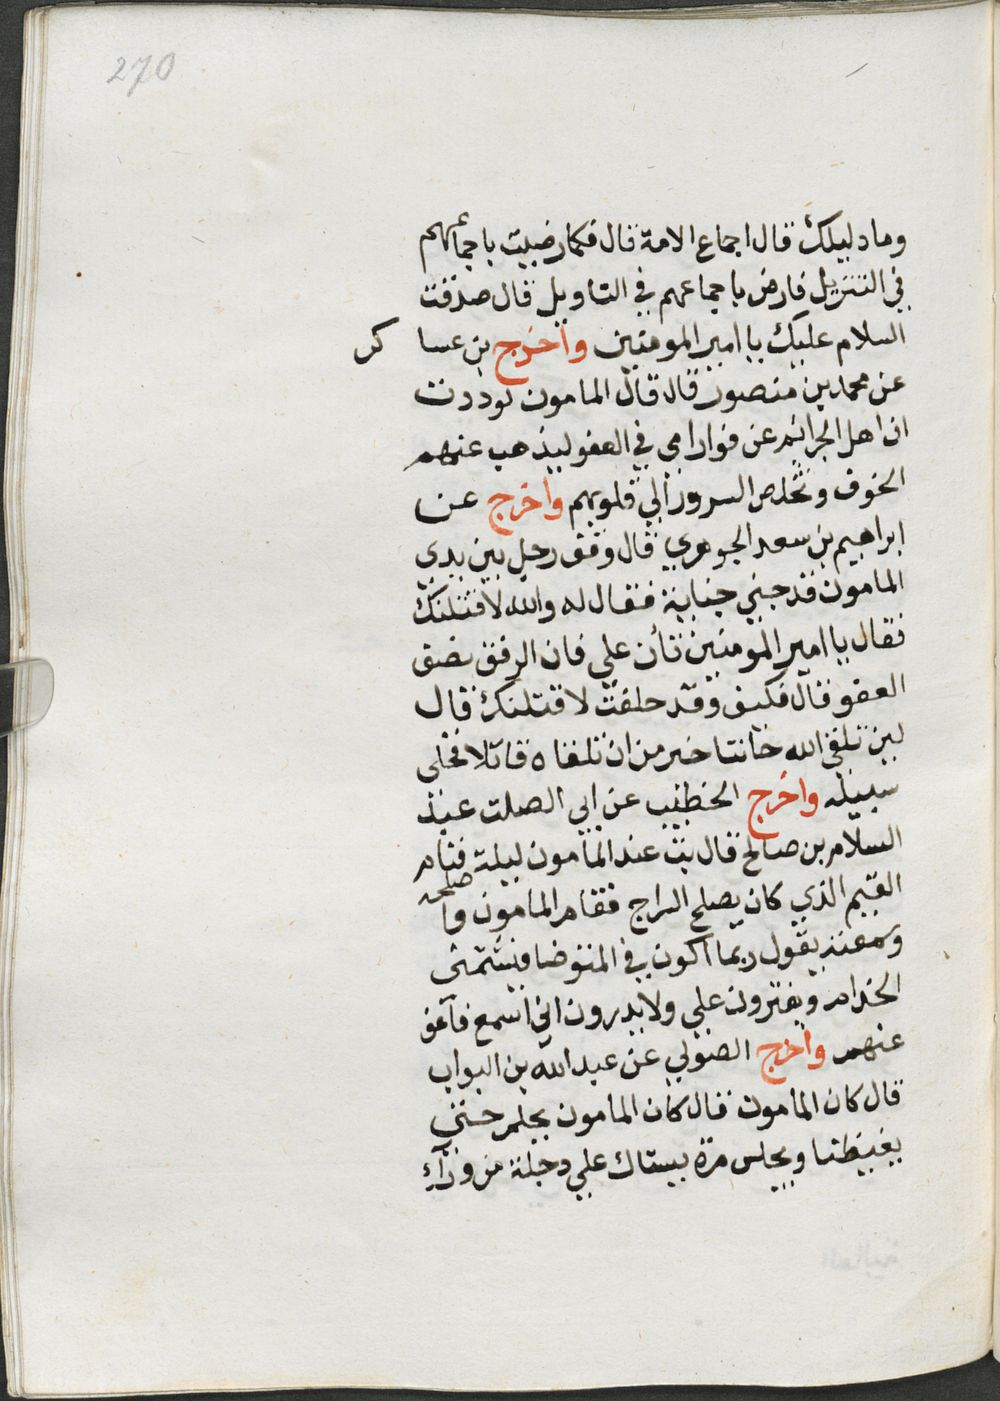 270
وما دليلك قال اجماع الامة قال فكما رضيت باجماعهم
في التنزيل فارض باجماعهم في التاويل قال صدقت
السلام عليك يا امير المومنين واخرج بن عساكر
عن محمد بن منصور قال قال المامون لوددت
ان اهل الجرائم عرفوا راي في العفو ليذهب عنهم
الخوف وتخلص السرور الي قلوبهم واخرج عن
ابراهيم بن سعد الجوهري قال وقف رجل بين يدي
المامون قد جني جناية فقال له والله لاقتلنك
فقال يا امير المومنين تأن علي فان الرفق نصف
العفو قال فكيف وقد حلفت لاقتلنك قال
لين تلقي الله حانثا خير من ان تلقاه قاتلا فخلي
سبيله واخرج الخطيب عن ابي الصلت عبد
السلام بن صالح قال بت عند المامون ليلة فنام
القيم الذي كان يصلح السراج فقام المامون واصلحه
وسمعته يقول ربما اكون في المتوضا فيشتمني
الخدام ويفترون علي ولا يدرون اني اسمع فاعف
عنهم واخرج الصولي عن عبد الله بن البواب
قال كان المامون قال كان المامون يحلم حتي
يغيظنا وبجلس مرة يستاك علي دجلة من ورآء